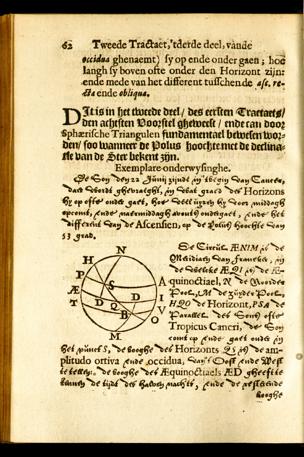 62 Tweede Tractaet, 'tderde deel, vande
occidua ghenaemt) sy op ende onder gaen; hoe
langh sy boven ofte onder den Horizont zijn:
ende mede van het different tusschende asc. re-
cta ende obliqua.
Dit is in het tweede deel / des eersten Tractaets /
den achtsten Voorstel gheweest / ende can door
Sphærische Triangulen fundamentael bewesen wor-
den / soo wanneer de Polus hoochte met de declina-
tie van de Ster bekent zijn.
Exemplare onderwysinghe.
De Son den 22 Junij zijnde in 'tbegin van Cancer,
daer wordt ghevraeght, in wat graed des Horizonts
hy op ofte onder gaet, hoe veel uyren hy voor middagh
opcomt, ende naermiddagh avonts ondergaet, ende het
different van de Ascensien, op de Polus hoochte van
53 grad.
De Circul ÆNIM is de
Meridiaen van Franeker, in
de welcke ÆQI is de Æ-
quinoctiael, N de Noorder
Pool, M de zuyder Pool,
HQO de Horizont, PSA de
Parallel des Sons ofte
Tropicus Cancri, de Son
comt op ende gaet onder in
het punct S, de booghe des Horizonts QS is de am-
plitudo ortiva ende occidua, van't Oost ende West
te tellen: de booghe des Æquinoctiaels ÆD gheeft te
kennen de tijdt des halven nachts, ende de resterende
booghe
N
H
P
Æ
T
S
D
D
Q
B
A
I
V
O
M